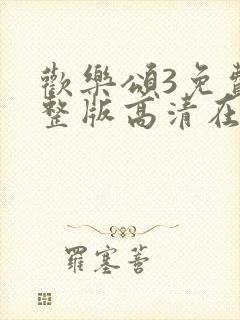 歡樂頌3免費
整版高清在
羅塞菩